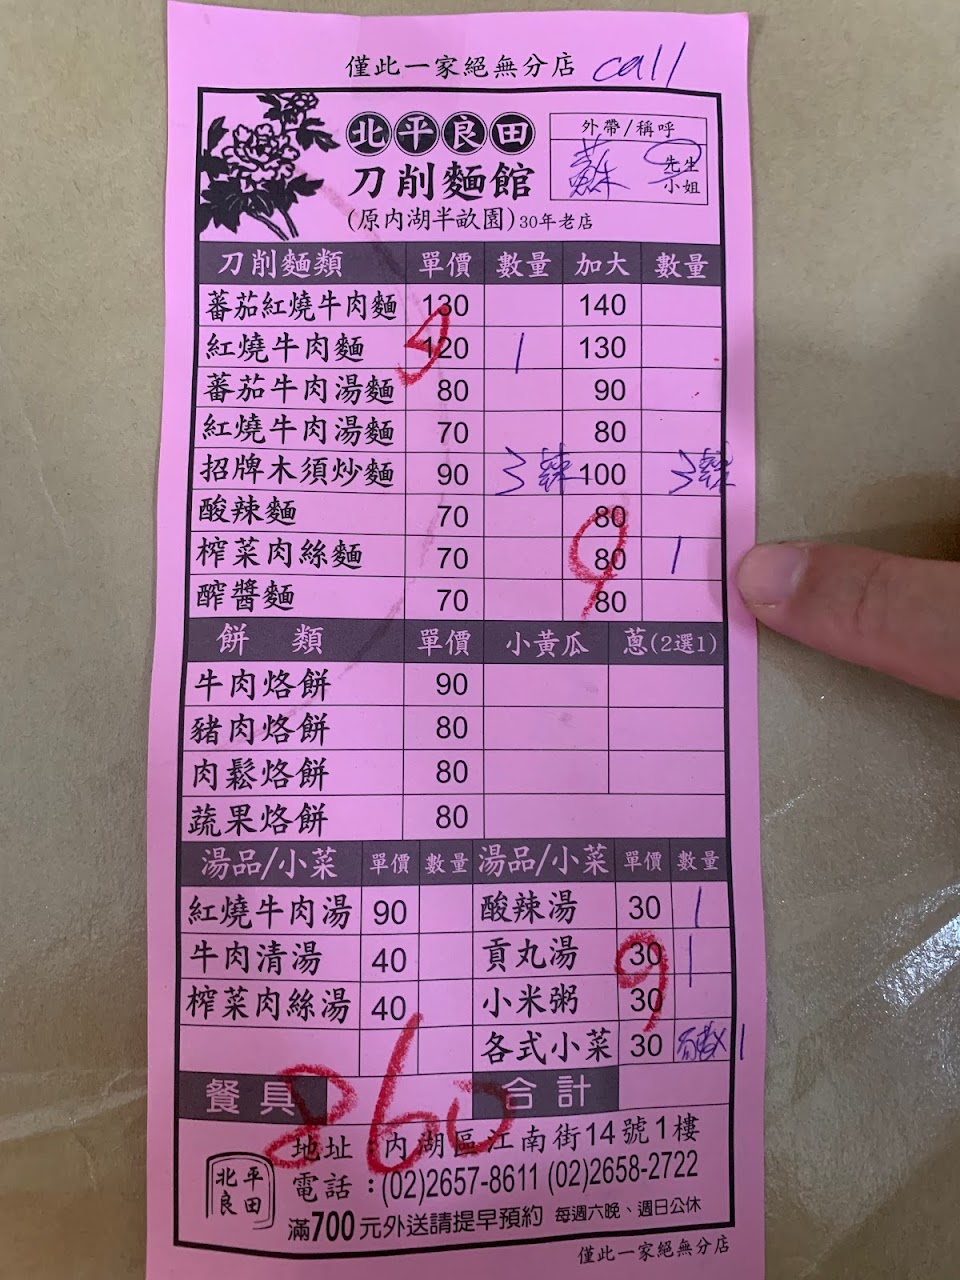 僅此一家絕無分店 call
北平良田
外帶/稱呼
刀削麵館
蘇 先生
小姐
(原內湖半畝園)30年老店
刀削麵類 單價 數量 加大 數量
蕃茄紅燒牛肉麵 130 140
紅燒牛肉麵 120 1 130
蕃茄牛肉湯麵 80 90
紅燒牛肉湯麵 70 80
招牌木須炒麵 90 3辣 100 3辣
酸辣麵 70 80
榨菜肉絲麵 70 80 1
醡醬麵 70 80
餅類 單價 小黃瓜 蔥(2選1)
牛肉烙餅 90
豬肉烙餅 80
肉鬆烙餅 80
蔬果烙餅 80
湯品/小菜 單價 數量 湯品/小菜 單價 數量
紅燒牛肉湯 90 酸辣湯 30 1
牛肉清湯 40 貢丸湯 30 1
榨菜肉絲湯 40 小米粥 30
各式小菜 30 1
9
餐具 合計
860
地址:內湖區江南街14號1樓
電話:(02)2657-8611 (02)2658-2722
北平良田
滿700元外送請提早預約 每週六晚、週日公休
僅此一家絕無分店